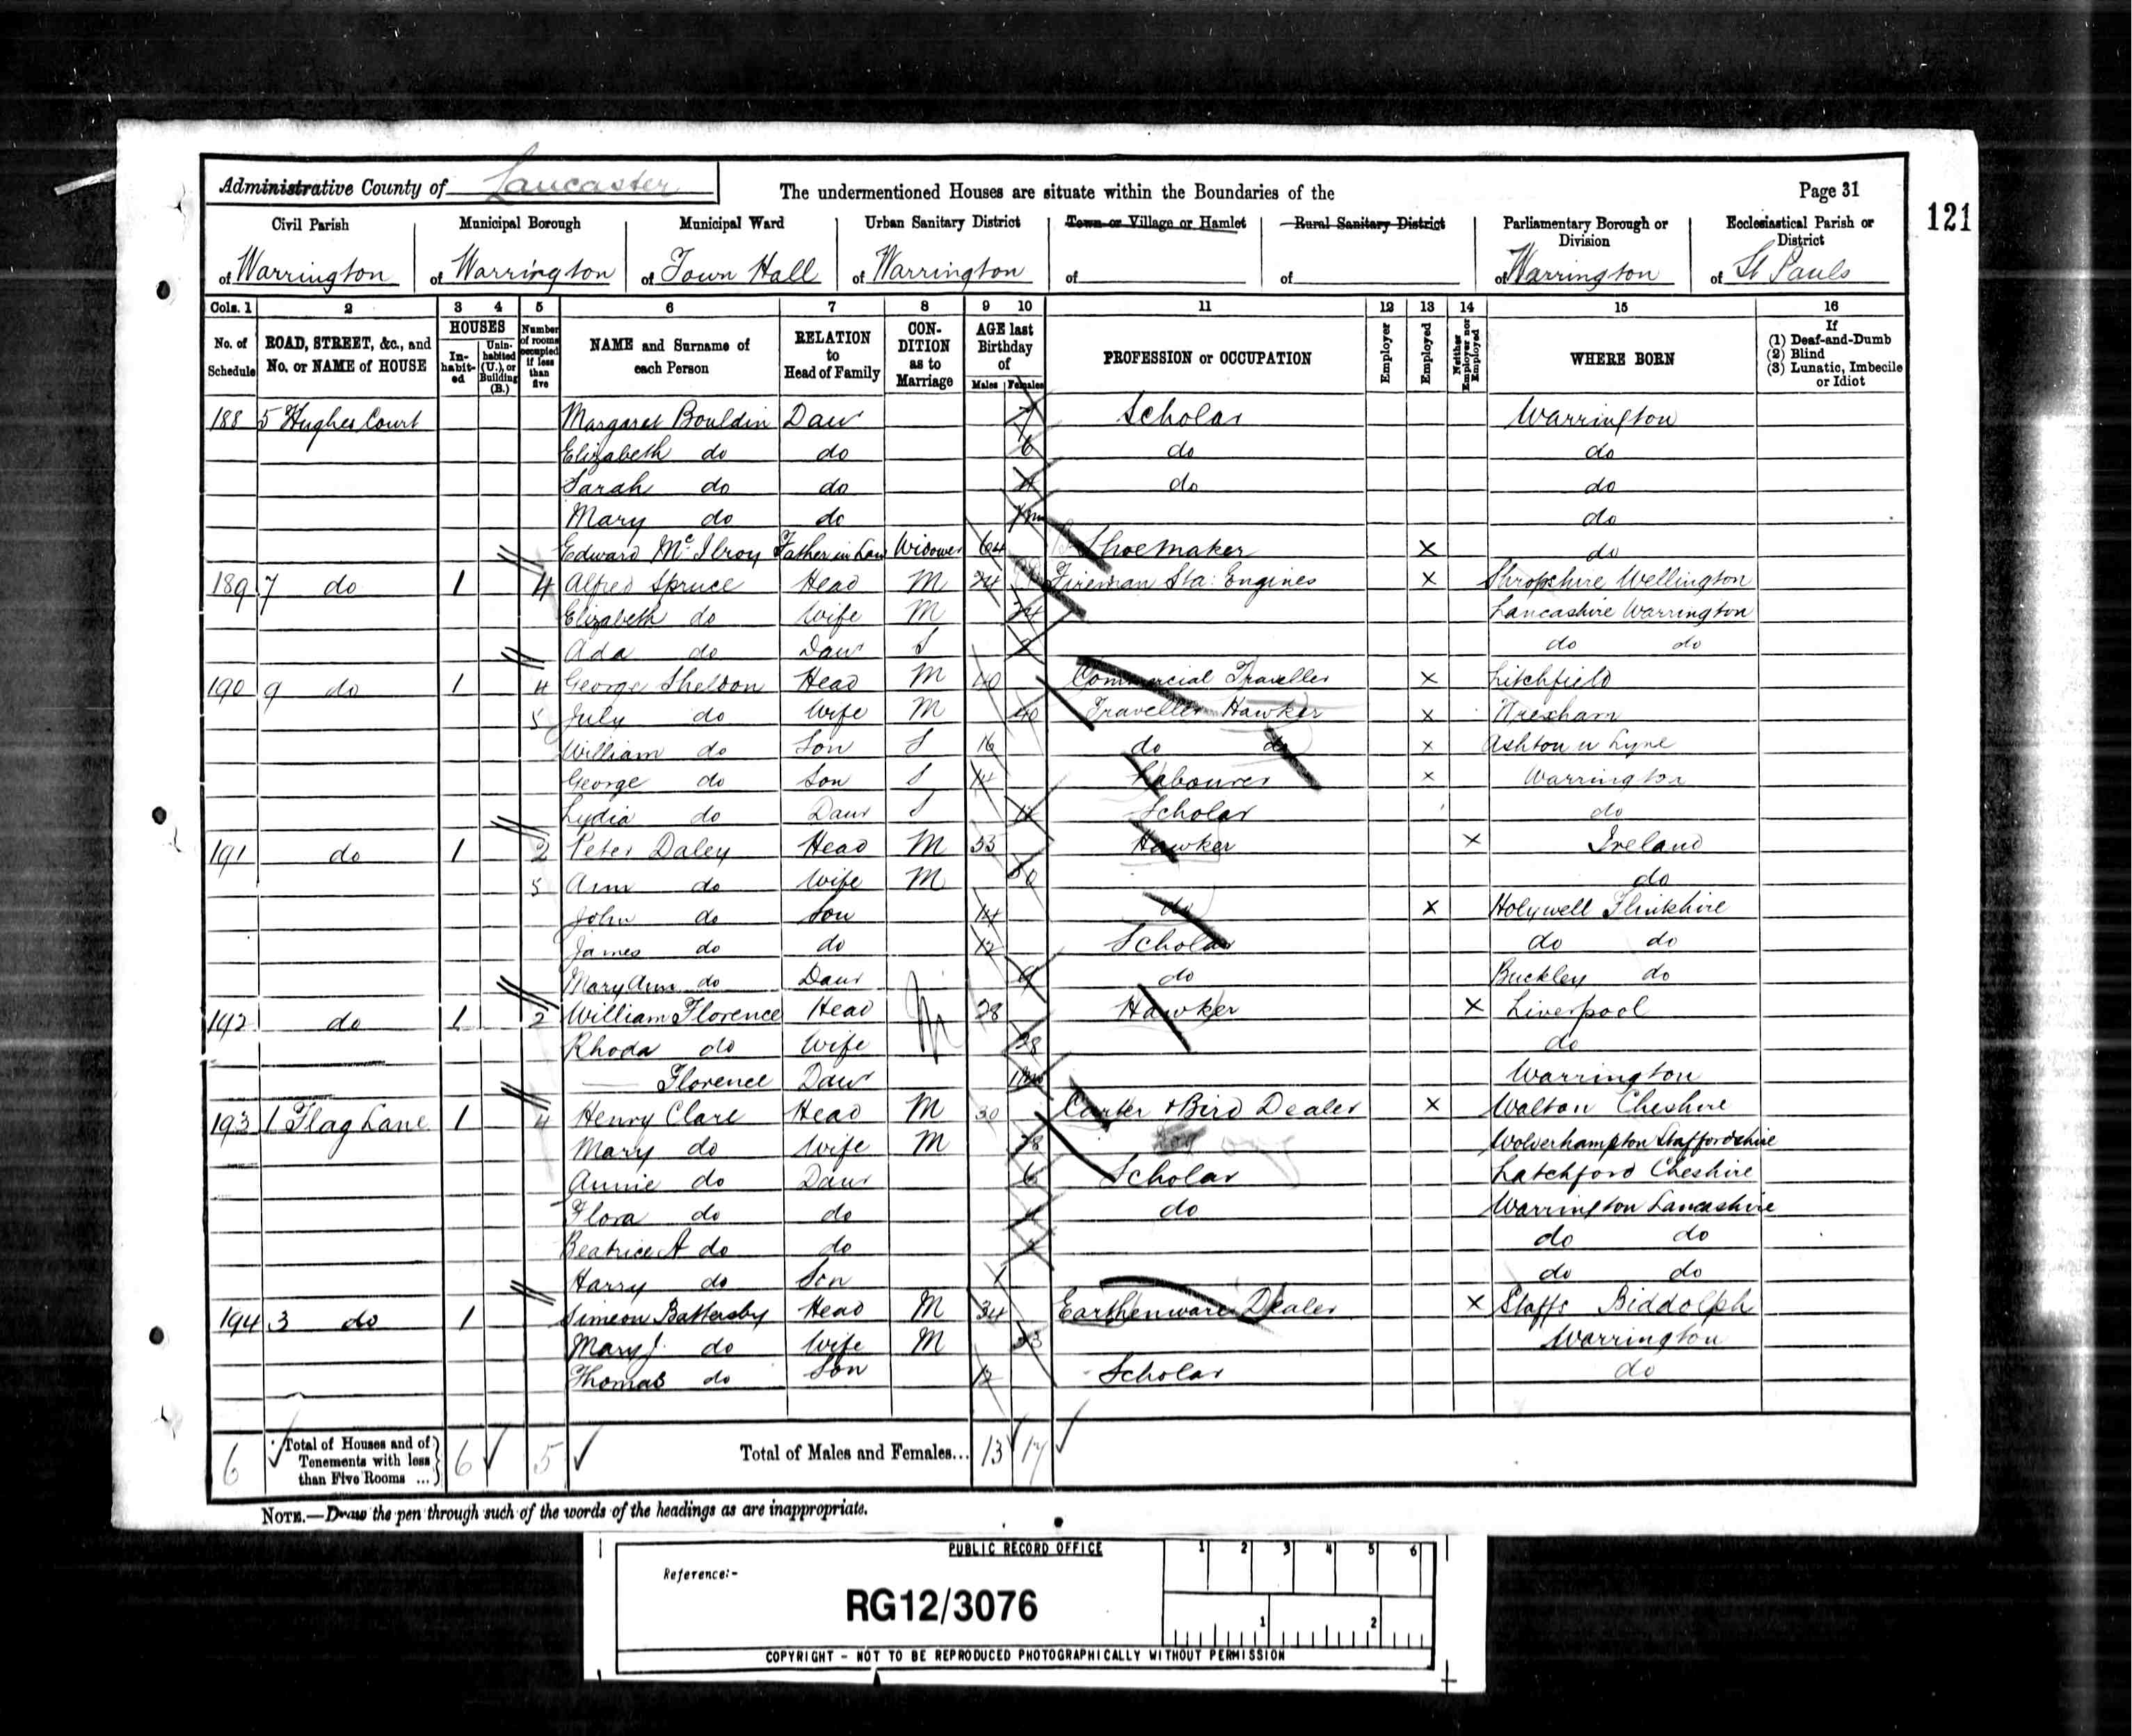 Administrative County of Lancaster
The undermentioned Houses are situate within the Boundaries of the
Page 31
121
Civil Parish Municipal Borough Municipal Ward Urban Sanitary District Town or Village or Hamlet Rural Sanitary District Parliamentary Borough or Division Ecclesiastical Parish or District
of Warrington of Warrington of Town Hall of Warrington of of of Warrington of St Pauls
Cols. 1 2 3 4 5 6 7 8 9 10 11 12 13 14 15 16
No. of Schedule ROAD, STREET, &c., and No. or NAME of HOUSE HOUSES In-habit-ed Unin-habited (U.), or Building (B.) Number of rooms occupied if less than five NAME and Surname of each Person RELATION to Head of Family CON-DITION as to Marriage AGE last Birthday of Males Females PROFESSION or OCCUPATION Employer Employed Neither Employer nor Employed WHERE BORN If (1) Deaf-and-Dumb (2) Blind (3) Lunatic, Imbecile or Idiot
188 5 Hughes Court Margaret Bouldin Daur Scholar Warrington
Elizabeth do do 6 do do
Sarah do do do do
Mary do do do
Edward Mc Ilroy Father in Law Widower 64 Shoemaker X do
189 7 do 1 4 Alfred Spruce Head M 24 Fireman Sta: Engines X Shropshire Wellington
Elizabeth do Wife M 24 Lancashire Warrington
Ada do Daur S do do
190 9 do 1 4 George Sheldon Head M 40 Commercial Traveller X Litchfield
5 July do Wife M 40 Traveller Hawker X Wrexham
William do Son S 16 do do X Ashton u Lyne
George do Son S 14 Labourer X Warrington
Lydia do Daur S 11 Scholar do
191 do 1 2 Peter Daley Head M 53 Hawker X Ireland
5 Ann do Wife M 50 do
John do Son 14 do X Holywell Flintshire
James do do 12 Scholar do do
Mary Ann do Daur 9 do Buckley do
192 do 1 2 William Florence Head M 28 Hawker X Liverpool
Rhoda do Wife 28 do
Florence Daur Warrington
193 1 Flag Lane 1 4 Henry Clare Head M 30 Carter + Bird Dealer X Walton Cheshire
Mary do Wife M 28 Wolverhampton Staffordshire
Annie do Daur 6 Scholar Latchford Cheshire
Flora do do do Warrington Lancashire
Beatrice A do do do do
Harry do Son 1 do do
194 3 do 1 Simeon Battersby Head M 34 Earthenware Dealer X Staffs Biddolph
Mary J. do Wife M 33 Warrington
Thomas do Son 12 Scholar do
6 Total of Houses and of Tenements with less than Five Rooms ... 6 5 Total of Males and Females... 13 17
NOTE.—Draw the pen through such of the words of the headings as are inappropriate.
PUBLIC RECORD OFFICE
1 2 3 4 5 6
Reference:-
RG12/3076
1 2
COPYRIGHT - NOT TO BE REPRODUCED PHOTOGRAPHICALLY WITHOUT PERMISSION